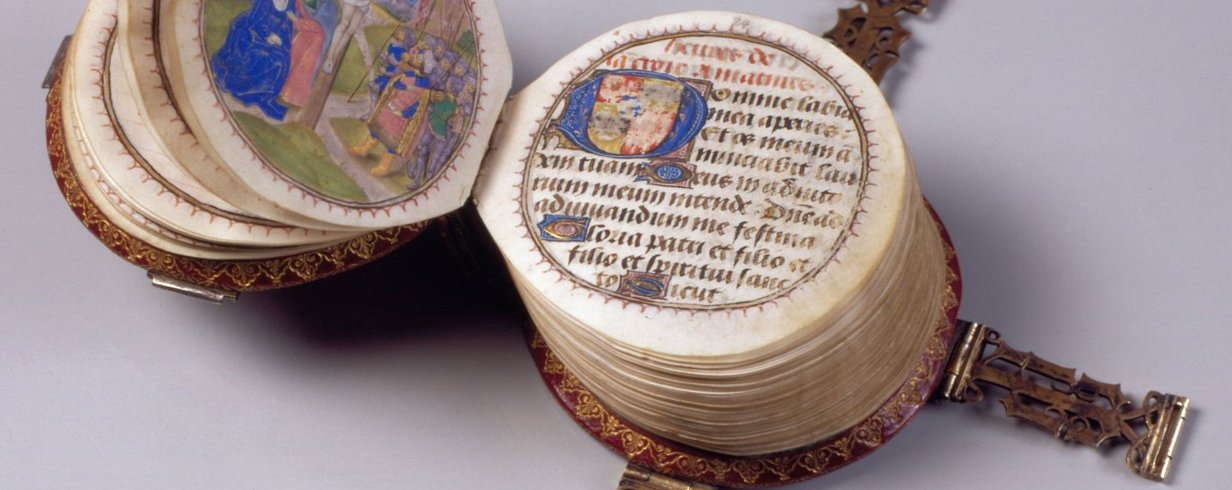 heures de
la croix a matines
Domine labia
mea aperies.
Et os meum a
nunciabit lau
dem tuam Deus in adiuto
rium meum intende. Dne ad
adiuvandum me festina
Gloria patri et filio et
filio et spiritui sanc
to Sicut